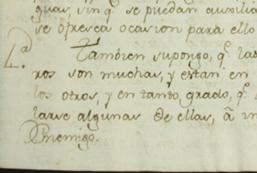 guas, sin q.e se puedan auxilia
se ofresca ocasion para ello
2.a Tambien supongo, q.e las
ros son muchas, y estan en
los otros, y en tanto grado, q.e
larse algunas de ellas, a in
Enemigo.